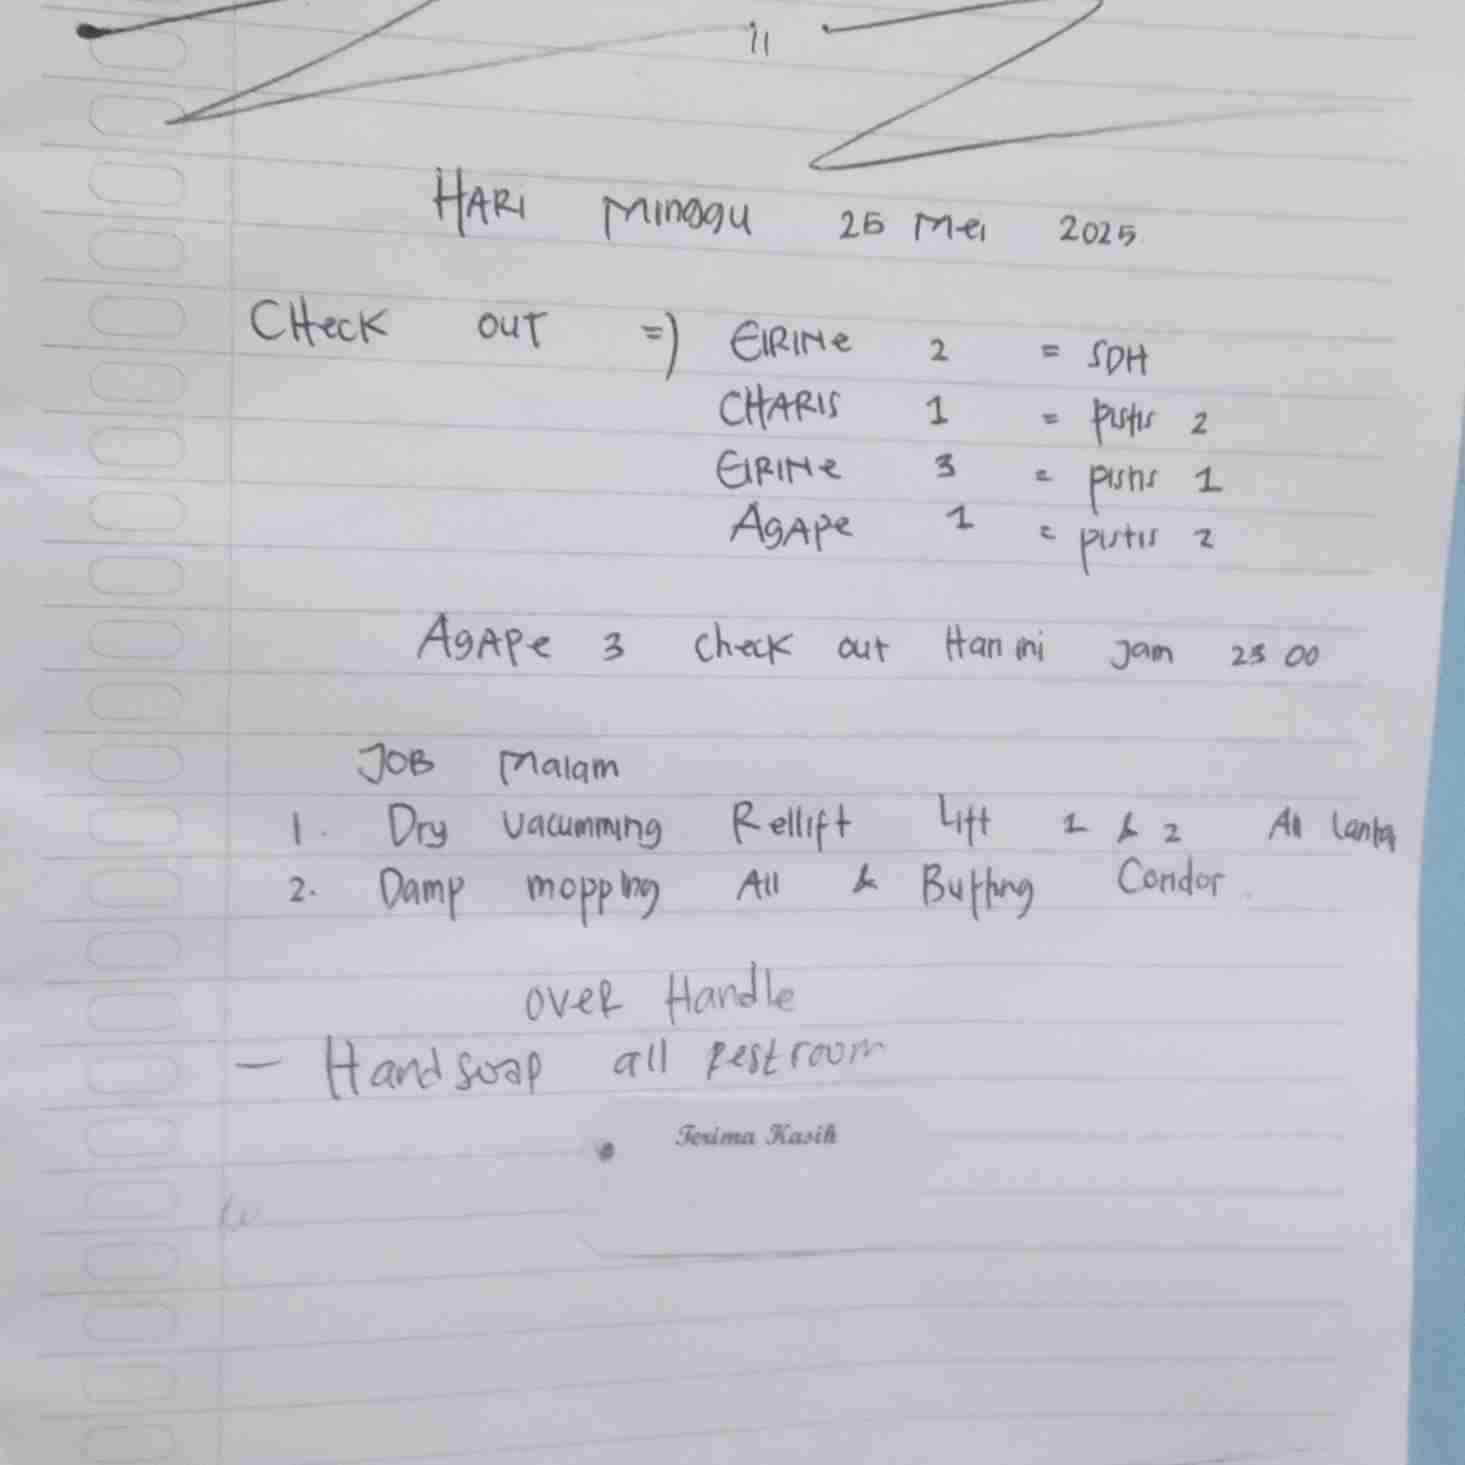 11
HARI Minggu 25 Mei 2025
CHeck OUT => EIRINe 2 = SDH
CHARIS 1 = pistis 2
EIRINe 3 = pistis 1
AgAPe 1 = pistis 2
AgAPe 3 check out Hari ini Jam 23 00
JOB Malam
1. Dry Vacumming Rellift Lift 1 & 2 All Lantai
2. Damp mopping All & Buffing Condor.
OVER Handle
— Handsoap all Restroom
Terima Kasih